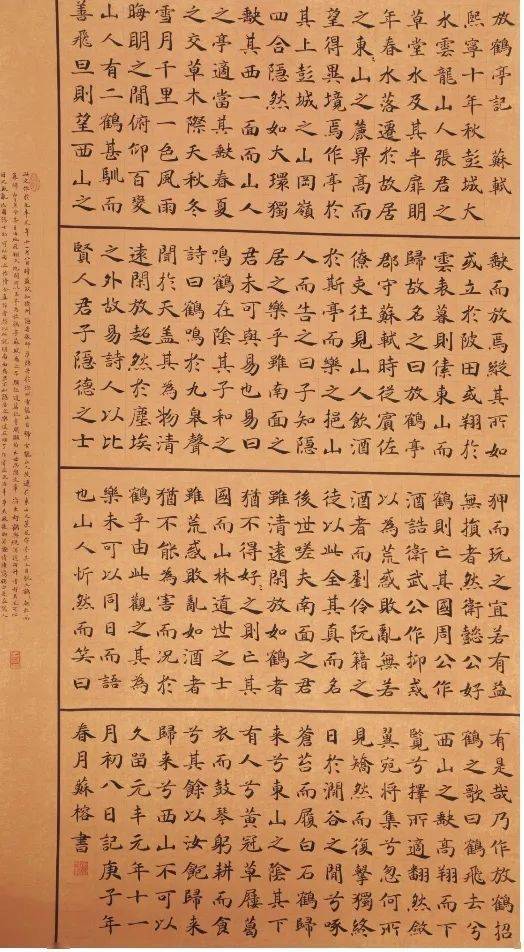 放鶴亭記 蘇軾
熙寧十年秋彭城大
水雲龍山人張君之
草堂水及其半扉明
年春水落遷於故居
之東山之麓昇高而
望得異境焉作亭於
其上彭城之山岡嶺
四合隱然如大環獨
缺其西一面而山人
之亭適當其缺春夏
之交草木際天秋冬
雪月千里一色風雨
晦明之間俯仰百變
山人有二鶴甚馴而
善飛旦則望西山之
缺而放焉縱其所如
或立於陂田或翔於
雲表暮則傃東山而
歸故名之曰放鶴亭
郡守蘇軾時從賓佐
僚吏往見山人飲酒
於斯亭而樂之挹山
人而告之曰子知隱
居之樂乎雖南面之
君未可與易也易曰
鳴鶴在陰其子和之
詩曰鶴鳴於九皋聲
聞於天蓋其為物清
遠閑放超然於塵埃
之外故易詩人以比
賢人君子隱德之士
狎而玩之宜若有益
無損者然衛懿公好
鶴則亡其國周公作
酒誥衛武公作抑戒
以為荒惑敗亂無若
酒者而劉伶阮籍之
徒以此全其真而名
後世嗟夫南面之君
雖清遠閑放如鶴者
猶不得好之則亡其
國而山林遁世之士
雖荒惑敗亂如酒者
猶不能為害而況於
鶴乎由此觀之其為
樂未可以同日而語
也山人忻然而笑曰
有是哉乃作放鶴招
鶴之歌曰鶴飛去兮
西山之缺高翔而下
覽兮擇所適翻然斂
翼宛將集兮忽何所
見矯然而復擊獨終
日於澗谷之間兮啄
蒼苔而履白石鶴歸
來兮東山之陰其下
有人兮黃冠草屨葛
衣而鼓琴躬耕而食
兮其餘以汝飽歸來
歸來兮西山不可以
久留元丰元年十一
月初八日記庚子年
春月蘇榕書